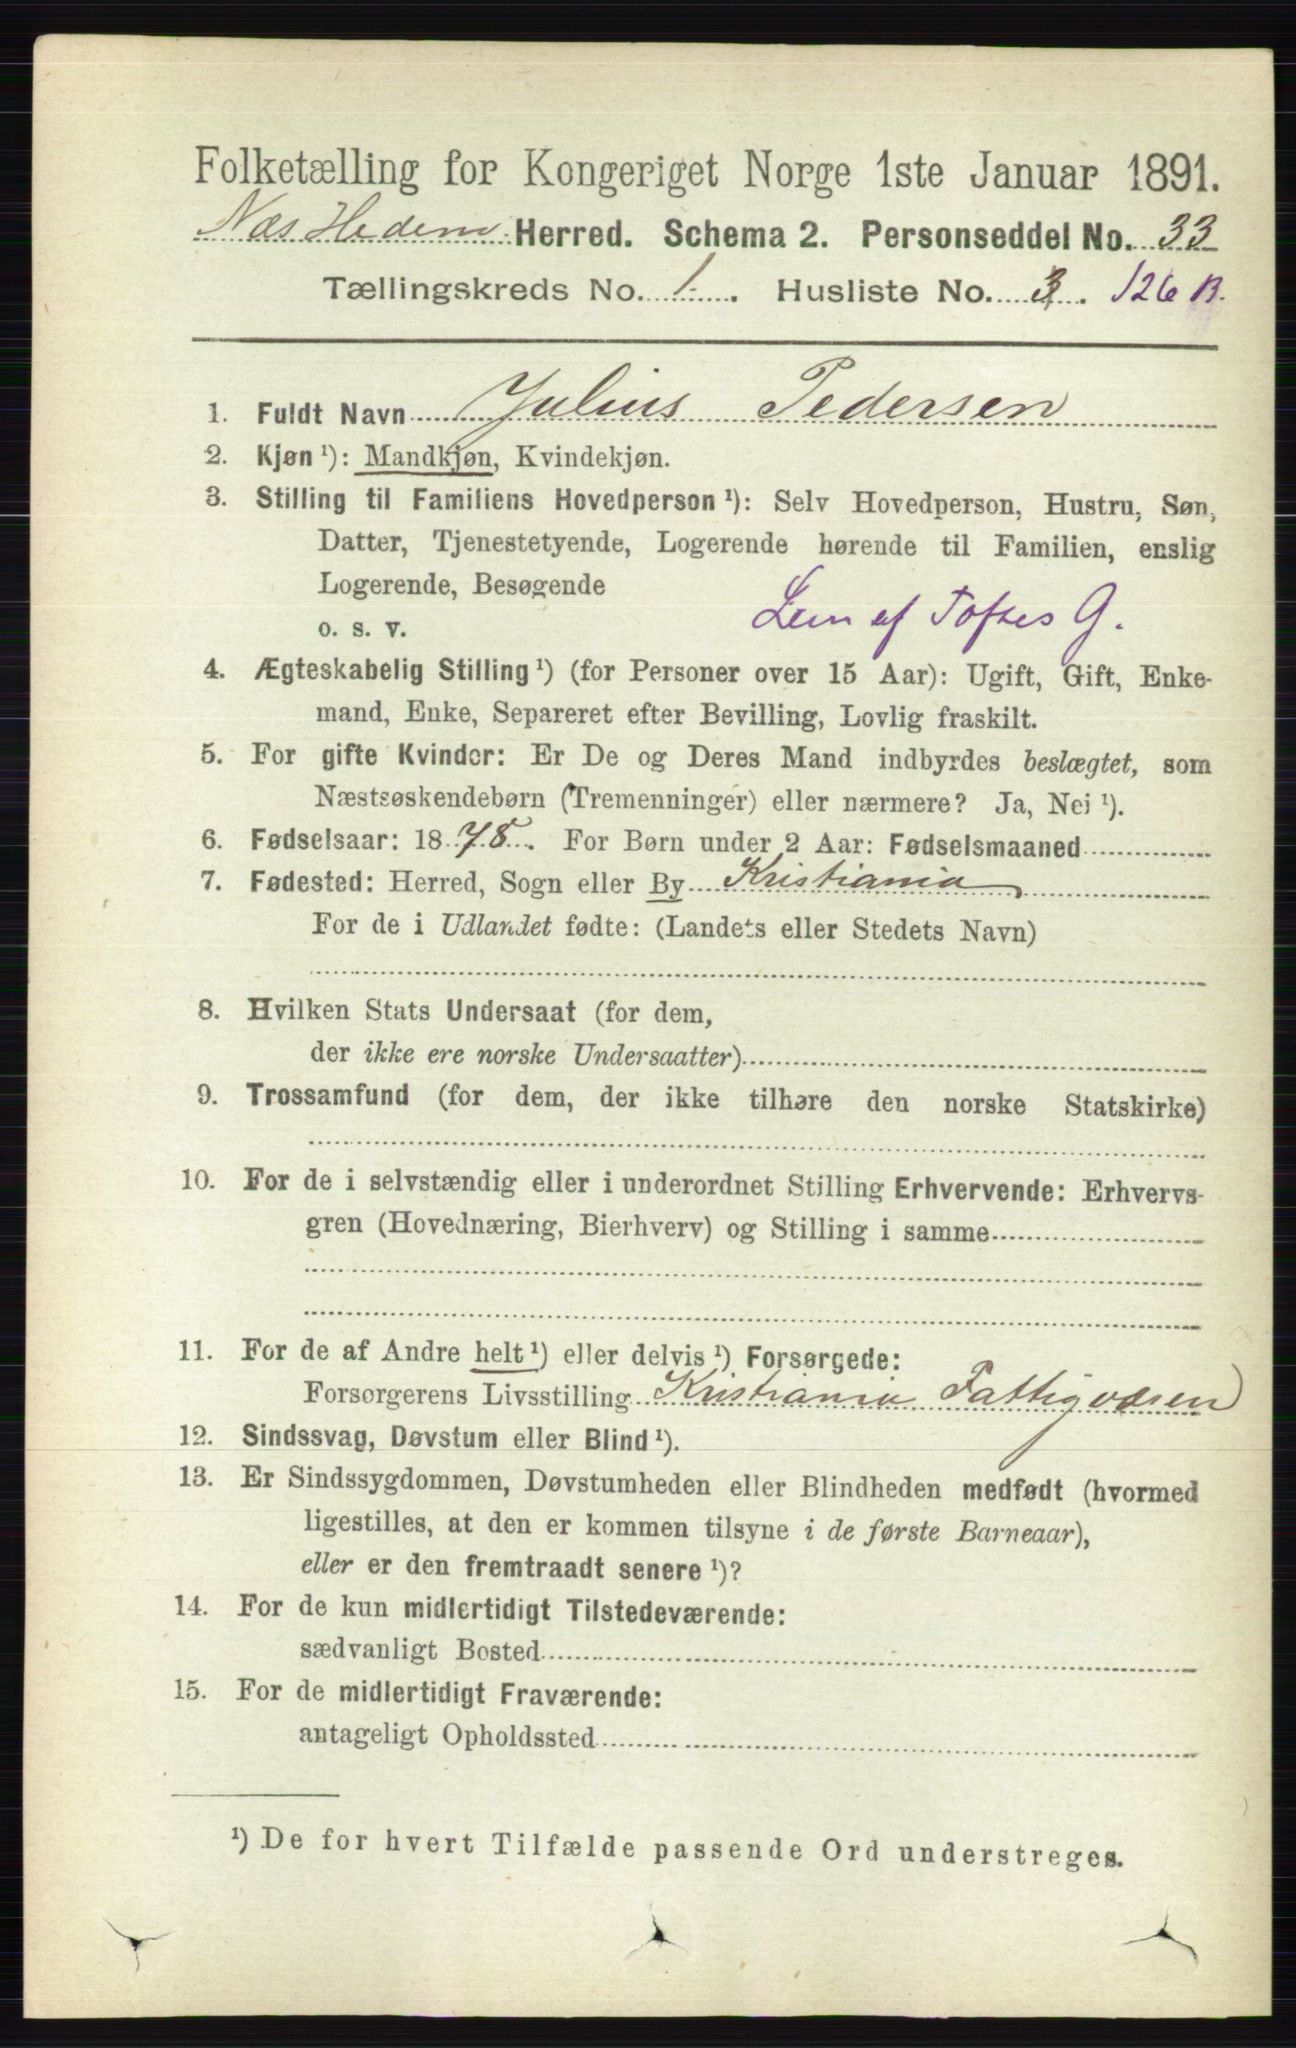 Folketælling for Kongeriget Norge 1ste Januar 1891.
Næs Hedem Herred. Schema 2. Personseddel No. 33
Tællingskreds No. 1. Husliste No. 3. 126 B.
1. Fuldt Navn Julius Pedersen
2. Kjøn ¹): Mandkjøn, Kvindekjøn.
3. Stilling til Familiens Hovedperson ¹): Selv Hovedperson, Hustru, Søn,
Datter, Tjenestetyende, Logerende hørende til Familien, enslig
Logerende, Besøgende
o. s. v. Lem af Toftes G.
4. Ægteskabelig Stilling ¹) (for Personer over 15 Aar): Ugift, Gift, Enke-
mand, Enke, Separeret efter Bevilling, Lovlig fraskilt.
5. For gifte Kvinder: Er De og Deres Mand indbyrdes beslægtet, som
Næstsøskendebørn (Tremenninger) eller nærmere? Ja, Nei ¹).
6. Fødselsaar: 1878. For Børn under 2 Aar: Fødselsmaaned
7. Fødested: Herred, Sogn eller By Kristiania
For de i Udlandet fødte: (Landets eller Stedets Navn)
8. Hvilken Stats Undersaat (for dem,
der ikke ere norske Undersaatter)
9. Trossamfund (for dem, der ikke tilhøre den norske Statskirke)
10. For de i selvstændig eller i underordnet Stilling Erhvervende: Erhvervs-
gren (Hovednæring, Bierhverv) og Stilling i samme
11. For de af Andre helt ¹) eller delvis ¹) Forsørgede:
Forsørgerens Livsstilling Kristiania Fattigvæsen
12. Sindssvag, Døvstum eller Blind ¹).
13. Er Sindssygdommen, Døvstumheden eller Blindheden medfødt (hvormed
ligestilles, at den er kommen tilsyne i de første Barneaar),
eller er den fremtraadt senere ¹)?
14. For de kun midlertidigt Tilstedeværende:
sædvanligt Bosted
15. For de midlertidigt Fraværende:
antageligt Opholdssted
¹) De for hvert Tilfælde passende Ord understreges.